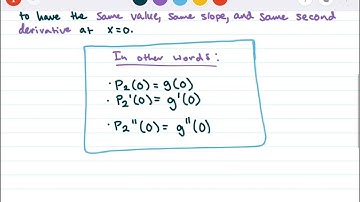 to have the same value, same slope, and same second
derivative at x=0.
In other words:
· P₂(0) = g(0)
· P₂'(0) = g'(0)
· P₂"(0) = g"(0)